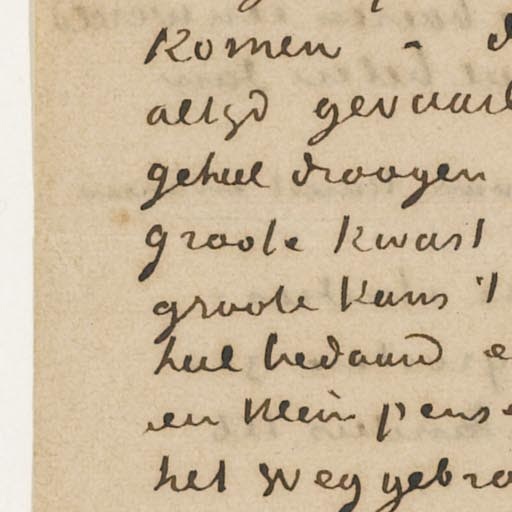 komen - d
altijd gevaarl
geheel droogen
groote kwast
groote kans 't
heel bedaard e
een klein pense
het weggebra